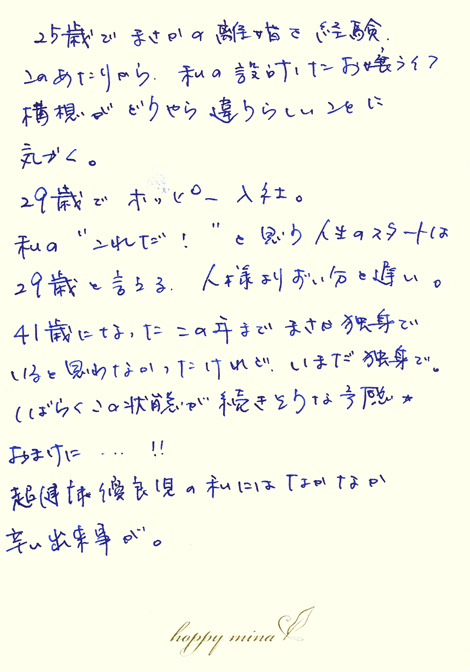 25歳でまさかの離婚を経験.
このあたりから、私の設計したお嬢ライフ
構想がどうやら違うらしいことに
気がく。
29歳でホッピー入社。
私の"これだ!"と思う人生のスタートは
29歳と言える. 人様よりずい分と遅い。
41歳になったこの年までまさか独身で
いると思わなかったけれど、いまだ独身で。
しばらくこの状態が続きそうな予感☆
おまけに … !!
超健康優良児の私にはなかなか
辛い出来事が。
happy mina